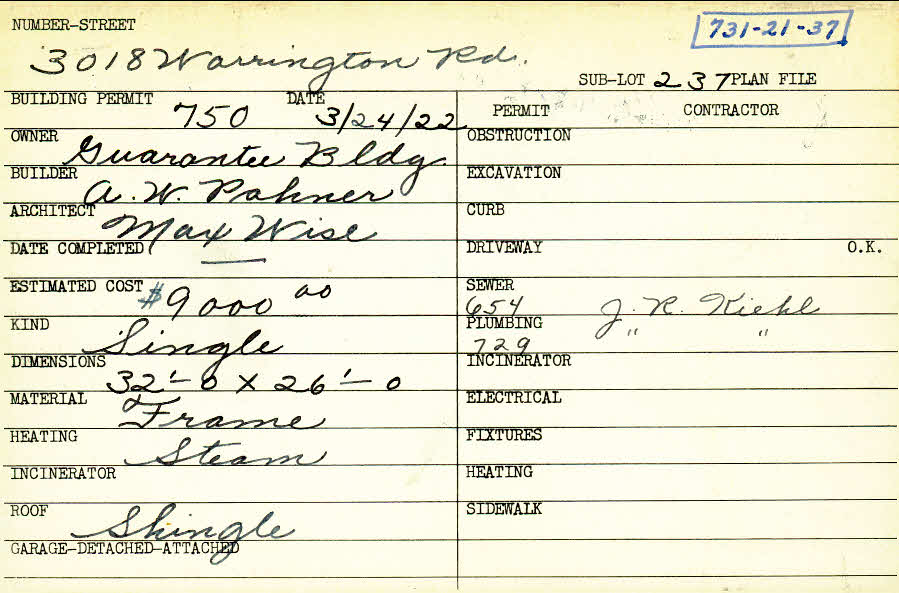 NUMBER-STREET
731-21-37
3018 Warrington Rd.
SUB-LOT 237 PLAN FILE
BUILDING PERMIT 750 DATE 3/24/22
PERMIT CONTRACTOR
OWNER Guarantee Bldg.
OBSTRUCTION
BUILDER A. W. Pahner
EXCAVATION
ARCHITECT Max Wise
CURB
DATE COMPLETED —
DRIVEWAY O.K.
ESTIMATED COST $9000 00
SEWER 654 J. R. Kiehl
KIND Single
PLUMBING 729 " "
DIMENSIONS 32'-0 X 26'-0
INCINERATOR
MATERIAL Frame
ELECTRICAL
HEATING Steam
FIXTURES
INCINERATOR
HEATING
ROOF Shingle
SIDEWALK
GARAGE-DETACHED-ATTACHED